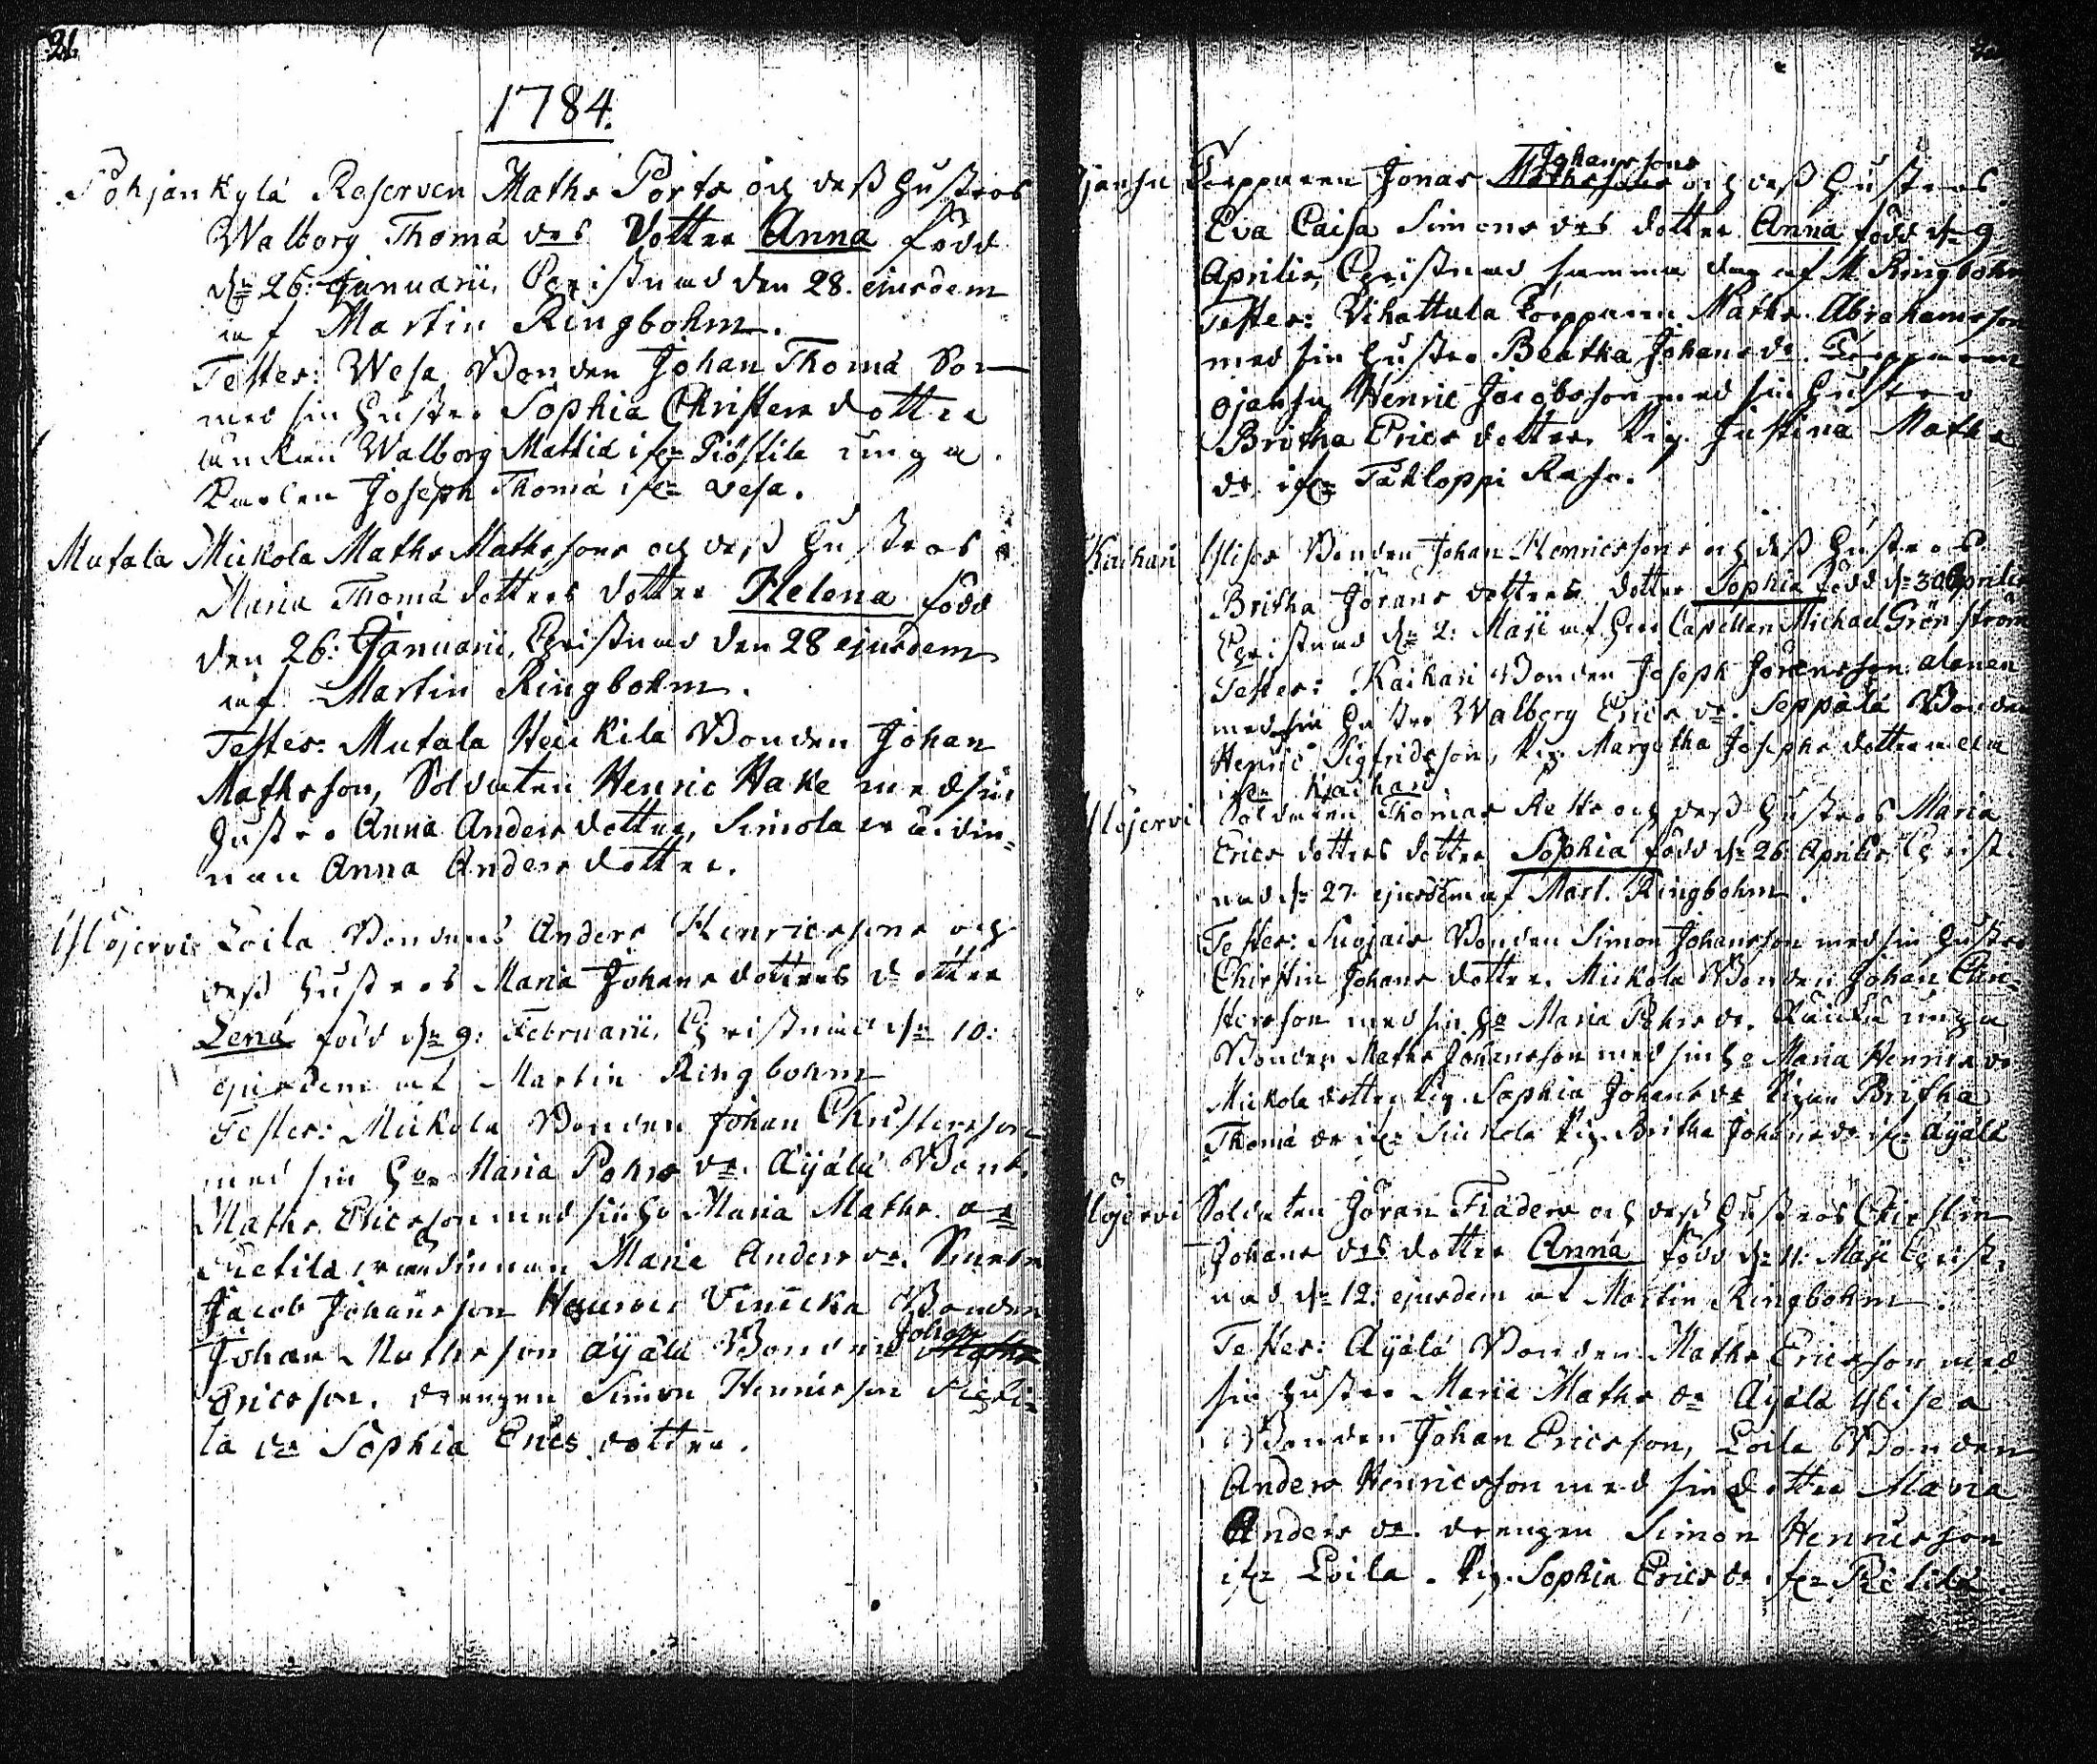 1784.
Pohjankylä Reserven Maths Ports och dess hustrus
Walborg Thomä drs dotter Anna född
dn 26: Januarii, Christnad den 28. ejusdem
af Martin Ringbohm.
Testes: Wesa Bonden Johan Thomä Son
med sin hustru Sophia Christers dotter
Walborg Mattid ifrn unga
Karlen Joseph Thomä ifrn Vesa.
Mutala Mickola Maths Mathssons och dess hustrus
Maria Thomä dotters dotter Helena född
den 26: Januarii, Christnad den 28 ejusdem
af Martin Ringbohm.
Testes: Mutala Heickilä Bonden Johan
Mathsson, Soldaten Henric Hake med sin
hustru Anna Anders dotter, Simola
Anna Anders dotter.
Ylöjervi Loila Bondens Anders Henricssons och
dess hustrus Maria Johans dotters dotter
Lena född dn 9: Februarii, Christnad dn 10:
ejusdem af Martin Ringbohm
Testes: Mickola Bonden Johan Christersson
med sin Ho Maria Pehrs dr. Äyälä Bond.
Maths Ericsson med sin Ho Maria Maths dr
Maria Anders dr.
Jacob Johansson Bonden
Johan Mathsson Äyälä Bonden Johan Maths
Ericsson, drengen Simon Henricsson
la Sophia Erics dotter.
Ojansu Torpparen Jonas Mathssons Johanssons och dess hustrus
Eva Caisa Simons drs dotter Anna född dn 9
Aprilis, Christnad samma dag af M Ringbohm
Testes: Vihattula Torpparen Maths Abrahamsson
med sin hustru Beatha Johans dr. Torpparen
Ojansu Henric Jacobsson med sin hustru
Britha Erics dotter. Pig. Justina Maths
dr ifrn Takloppi Rasr.
Kaihari Ylises Bonden Johan Henricssons och dess hustrus
Britha Jörans dotters dotter Sophia född dn 30 Aprilis
Christnad dn 2: Maji af Herr Capellan Michael Grönström
Testes: Kaihari Bonden Joseph Jöransson alanen
med sin hustru Walborg Erics dr. Seppälä Bonden
Henric Sigfridsson, Pig. Margetha Josephs dotter
ifrn Kaihari
Ylöjervi Soldaten Thomas Rette och dess hustrus Maria
Erics dotters dotter Sophia född dn 26 Aprilis Christ-
nad dn 27. ejusdem af Mart. Ringbohm.
Testes: Suojais Bonden Simon Johansson med sin hustru
Christin Johans dotter. Mickola Bonden Johan Chri-
stersson med sin Ho Maria Pehrs dr. unga
Bonden Maths Johansson med sin Ho Maria Henrics dr
Mickola dotter Pig. Sophia Johans dr Pigan Britha
Thomä dr ifrn Pig. Britha Johans dr ifrn Äyälä
Ylöjervi Soldaten Jöran Fiaders och dess hustrus Christin
Johans drs dotter Anna född dn 11. Maji Christ-
nad dn 12: ejusdem af Martin Ringbohm.
Testes: Äyälä Bonden Maths Ericsson med
sin hustru Maria Maths dr Äyälä Ylisea
Bonden Johan Ericsson, Loila Bonden
Anders Henricsson med sin dotter Maria
Anders dr. drengen Simon Henricsson
ifrn Loila. Pig. Sophia Erics dr ifrn